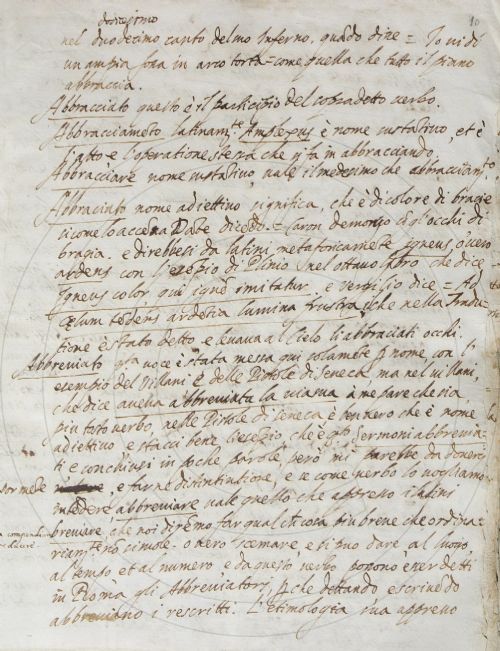 10
dodicesimo
nel duodecimo canto del suo Inferno, quādo dice = Io vidi
un ampia fossa in arco torta = come quella che tutto il piano
abbraccia.
Abbracciato questo è il participio del sopradetto verbo.
Abbracciamēto latinamte Amplexus è nome sustātivo, et è
l'atto e l'operatione stessa che si fa in abbracciando,
Abbracciare nome sustātivo, vale il medesimo che abbracciamto
Abbraciato nome adiettivo significa, che è di colore di bragie
si come lo accēna Dāte dicēdo = Caron demonio cō gl'occhi di
bragia. e direbbesi da latini metaforicamēte igneus, ò vero
ardens con l'esēpio di Plinio nel ottavo libro che dice
Igneus color qui ignē imitatur. e Vergilio dice = Ad
cœlum tēdens ardētia lumina frustra, che nella tradu-
tione è stato detto e levava al cielo li abbraciati occhi.
Abbreviato questa voce è stata messa qui solamēte p nome, con l'
esempio del Villani e delle Pistole di Seneca, ma nel Villani,
che dice avella abbreviata la à me pare che sia
piu tosto verbo, nelle Pistole di Seneca è ben vero che è nome
adiettivo e sta cui bene l'esēpio, che è gli sermoni abbrevia-
ti e conchiusi in poche parole, però mi parebbe da doversi
e farne distintione, e se come verbo lo vogliamo
intēdere abbreviare vale quello che appresso i latini
breviare, che noi diremo far qual che cosa piu breve che ordina-
riamte nō si vuole. o vero scemare, e si puo dare al luogo,
al tempo et al numero, e da questo verbo possono esser detti
in Roma gli Abbreviatori, p che dettando e scrivēdo
abbreviano i rescritti. L'Etimologia sua appresso